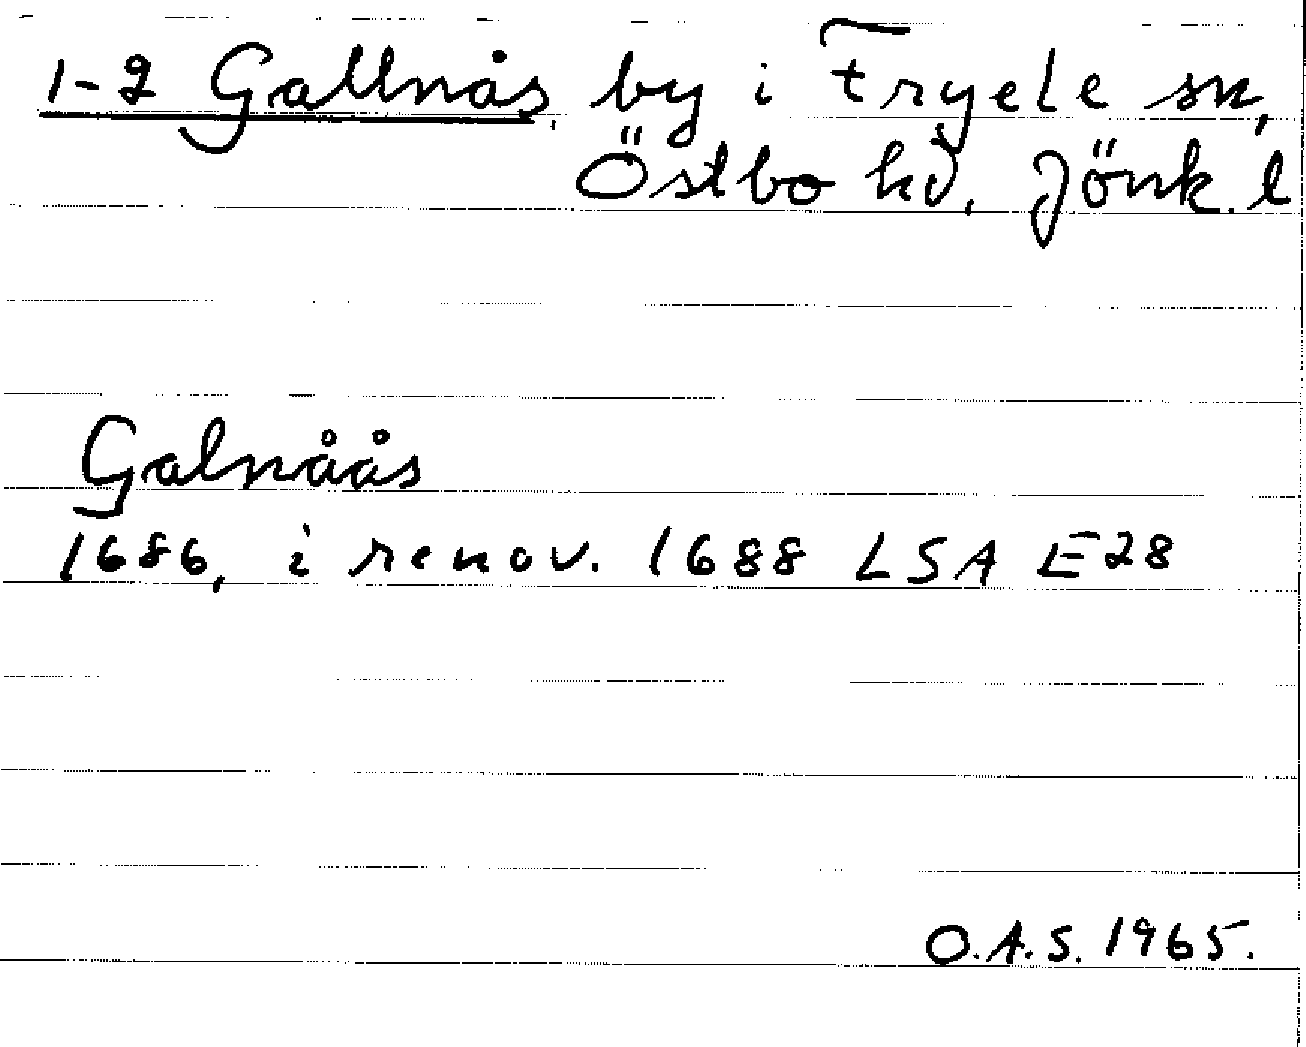 1-2 Gallnås, by i Fryele sn,
Östbo hd, Jönk. l
Galnåås
1686, i renov. 1688 LSA E28
O.A.S. 1965.